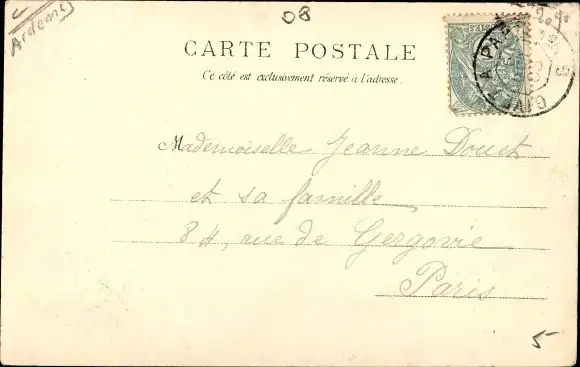 Ardennes
08
CARTE POSTALE
Ce côté est exclusivement réservé à l'adresse.
GIVET A PARIS
Mademoiselle Jeanne Douet
et sa famille
84, rue de Gergovie
Paris
5